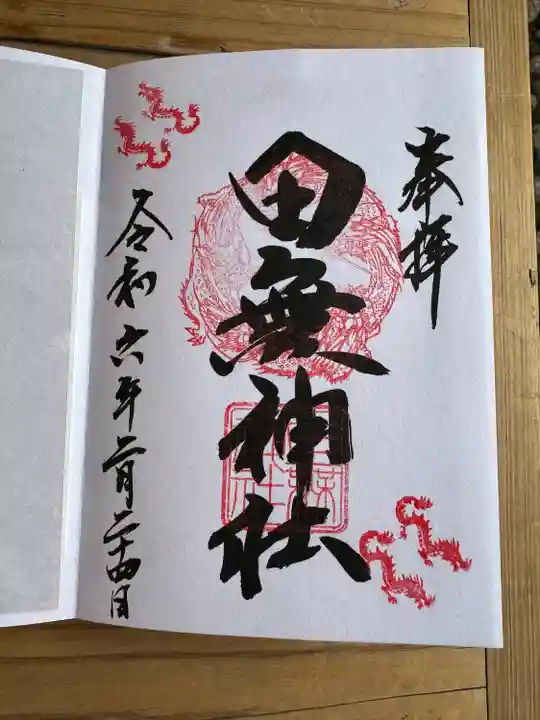 奉拝
田無神社
令和六年二月二十四日